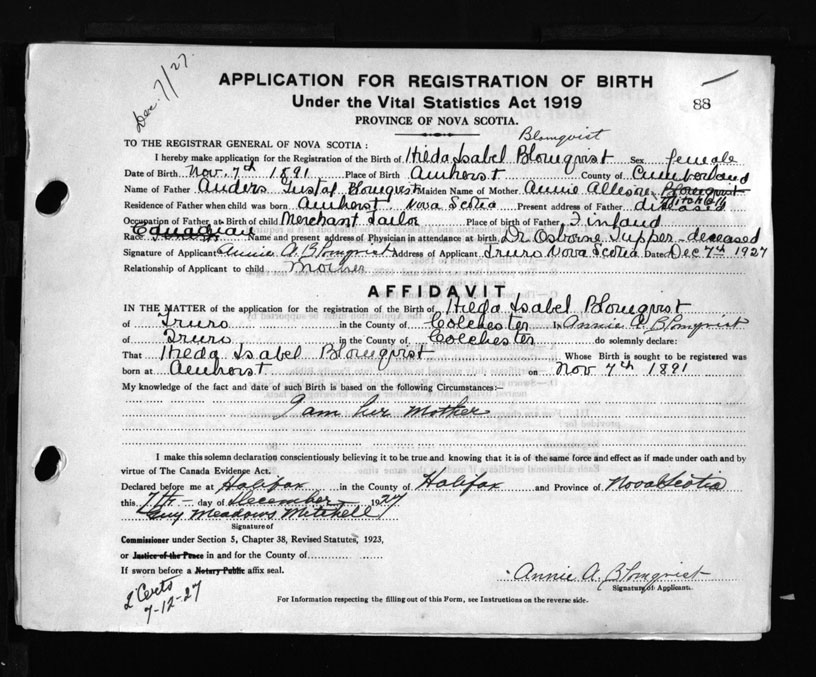 Dec. 7/27.
APPLICATION FOR REGISTRATION OF BIRTH
Under the Vital Statistics Act 1919
88
PROVINCE OF NOVA SCOTIA.
Blomqvist
TO THE REGISTRAR GENERAL OF NOVA SCOTIA:
I hereby make application for the Registration of the Birth of Hilda Isabel Blomqvist Sex female
Date of Birth Nov. 7th 1891 Place of Birth Amherst County of Cumberland
Name of Father Anders Gustaf Blomqvist Maiden Name of Mother Annie Blomqvist Mitchell
Residence of Father when child was born Amherst Nova Scotia Present address of Father deceased
Occupation of Father at Birth of child Merchant Tailor Place of birth of Father Finland
Race Name and present address of Physician in attendance at birth, Dr Osborne Tupper - deceased
Signature of Applicant Annie A Blomqvist Address of Applicant Truro Nova Scotia Dated Dec 7th 1927
Relationship of Applicant to child Mother
AFFIDAVIT
IN THE MATTER of the application for the registration of the Birth of Hilda Isabel Blomqvist
of Truro in the County of Colchester I, Annie A. Blomqvist
of Truro in the County of Colchester do solemnly declare:
That Hilda Isabel Blomqvist Whose Birth is sought to be registered was
born at Amherst on Nov 7th 1891
My knowledge of the fact and date of such Birth is based on the following Circumstances:—
I am her mother
I make this solemn declaration conscientiously believing it to be true and knowing that it is of the same force and effect as if made under oath and by
virtue of The Canada Evidence Act.
Declared before me at Halifax in the County of Halifax and Province of Nova Scotia
this 7th - day of December - 1927
Guy Meadows Mitchell
Signature of
Commissioner under Section 5, Chapter 38, Revised Statutes, 1923,
or Justice of the Peace in and for the County of
If sworn before a Notary Public affix seal.
Annie A. Blomqvist
Signature of Applicant.
2 Certs
7-12-27
For Information respecting the filling out of this Form, see Instructions on the reverse side.